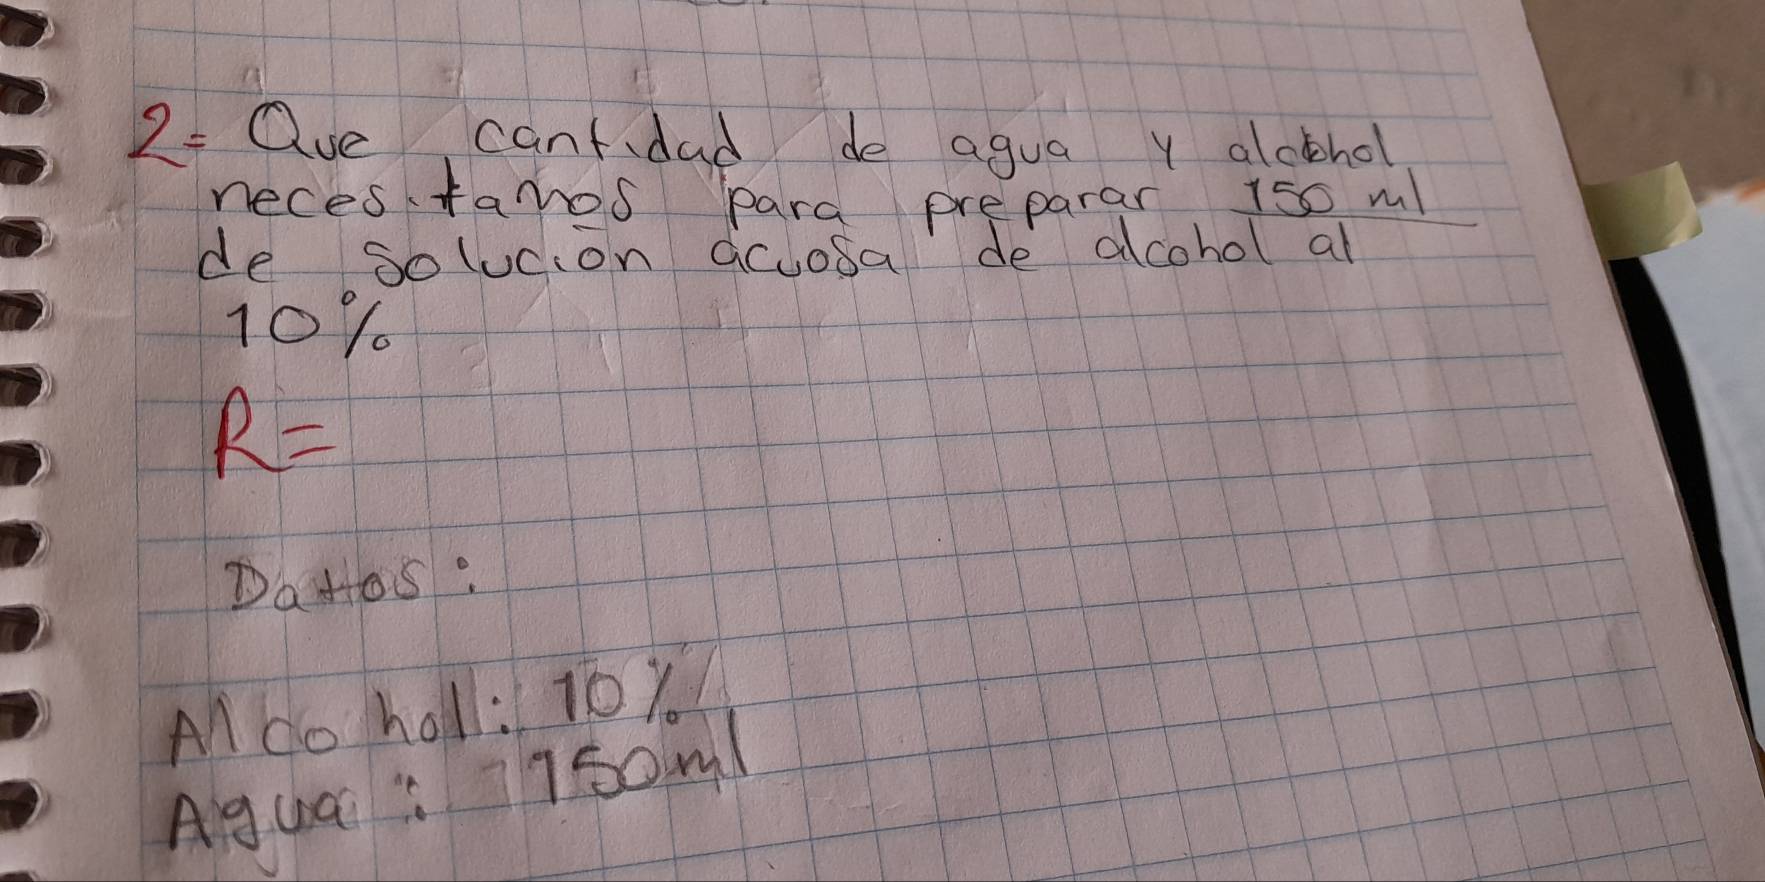 2= Que cantidad de agua y alcohol
necesitamos para preparar 150 ml
de solución acuosa de alcohol al
10%
R=
Datos:
Alcoholl: 10%
Agua: 150ml